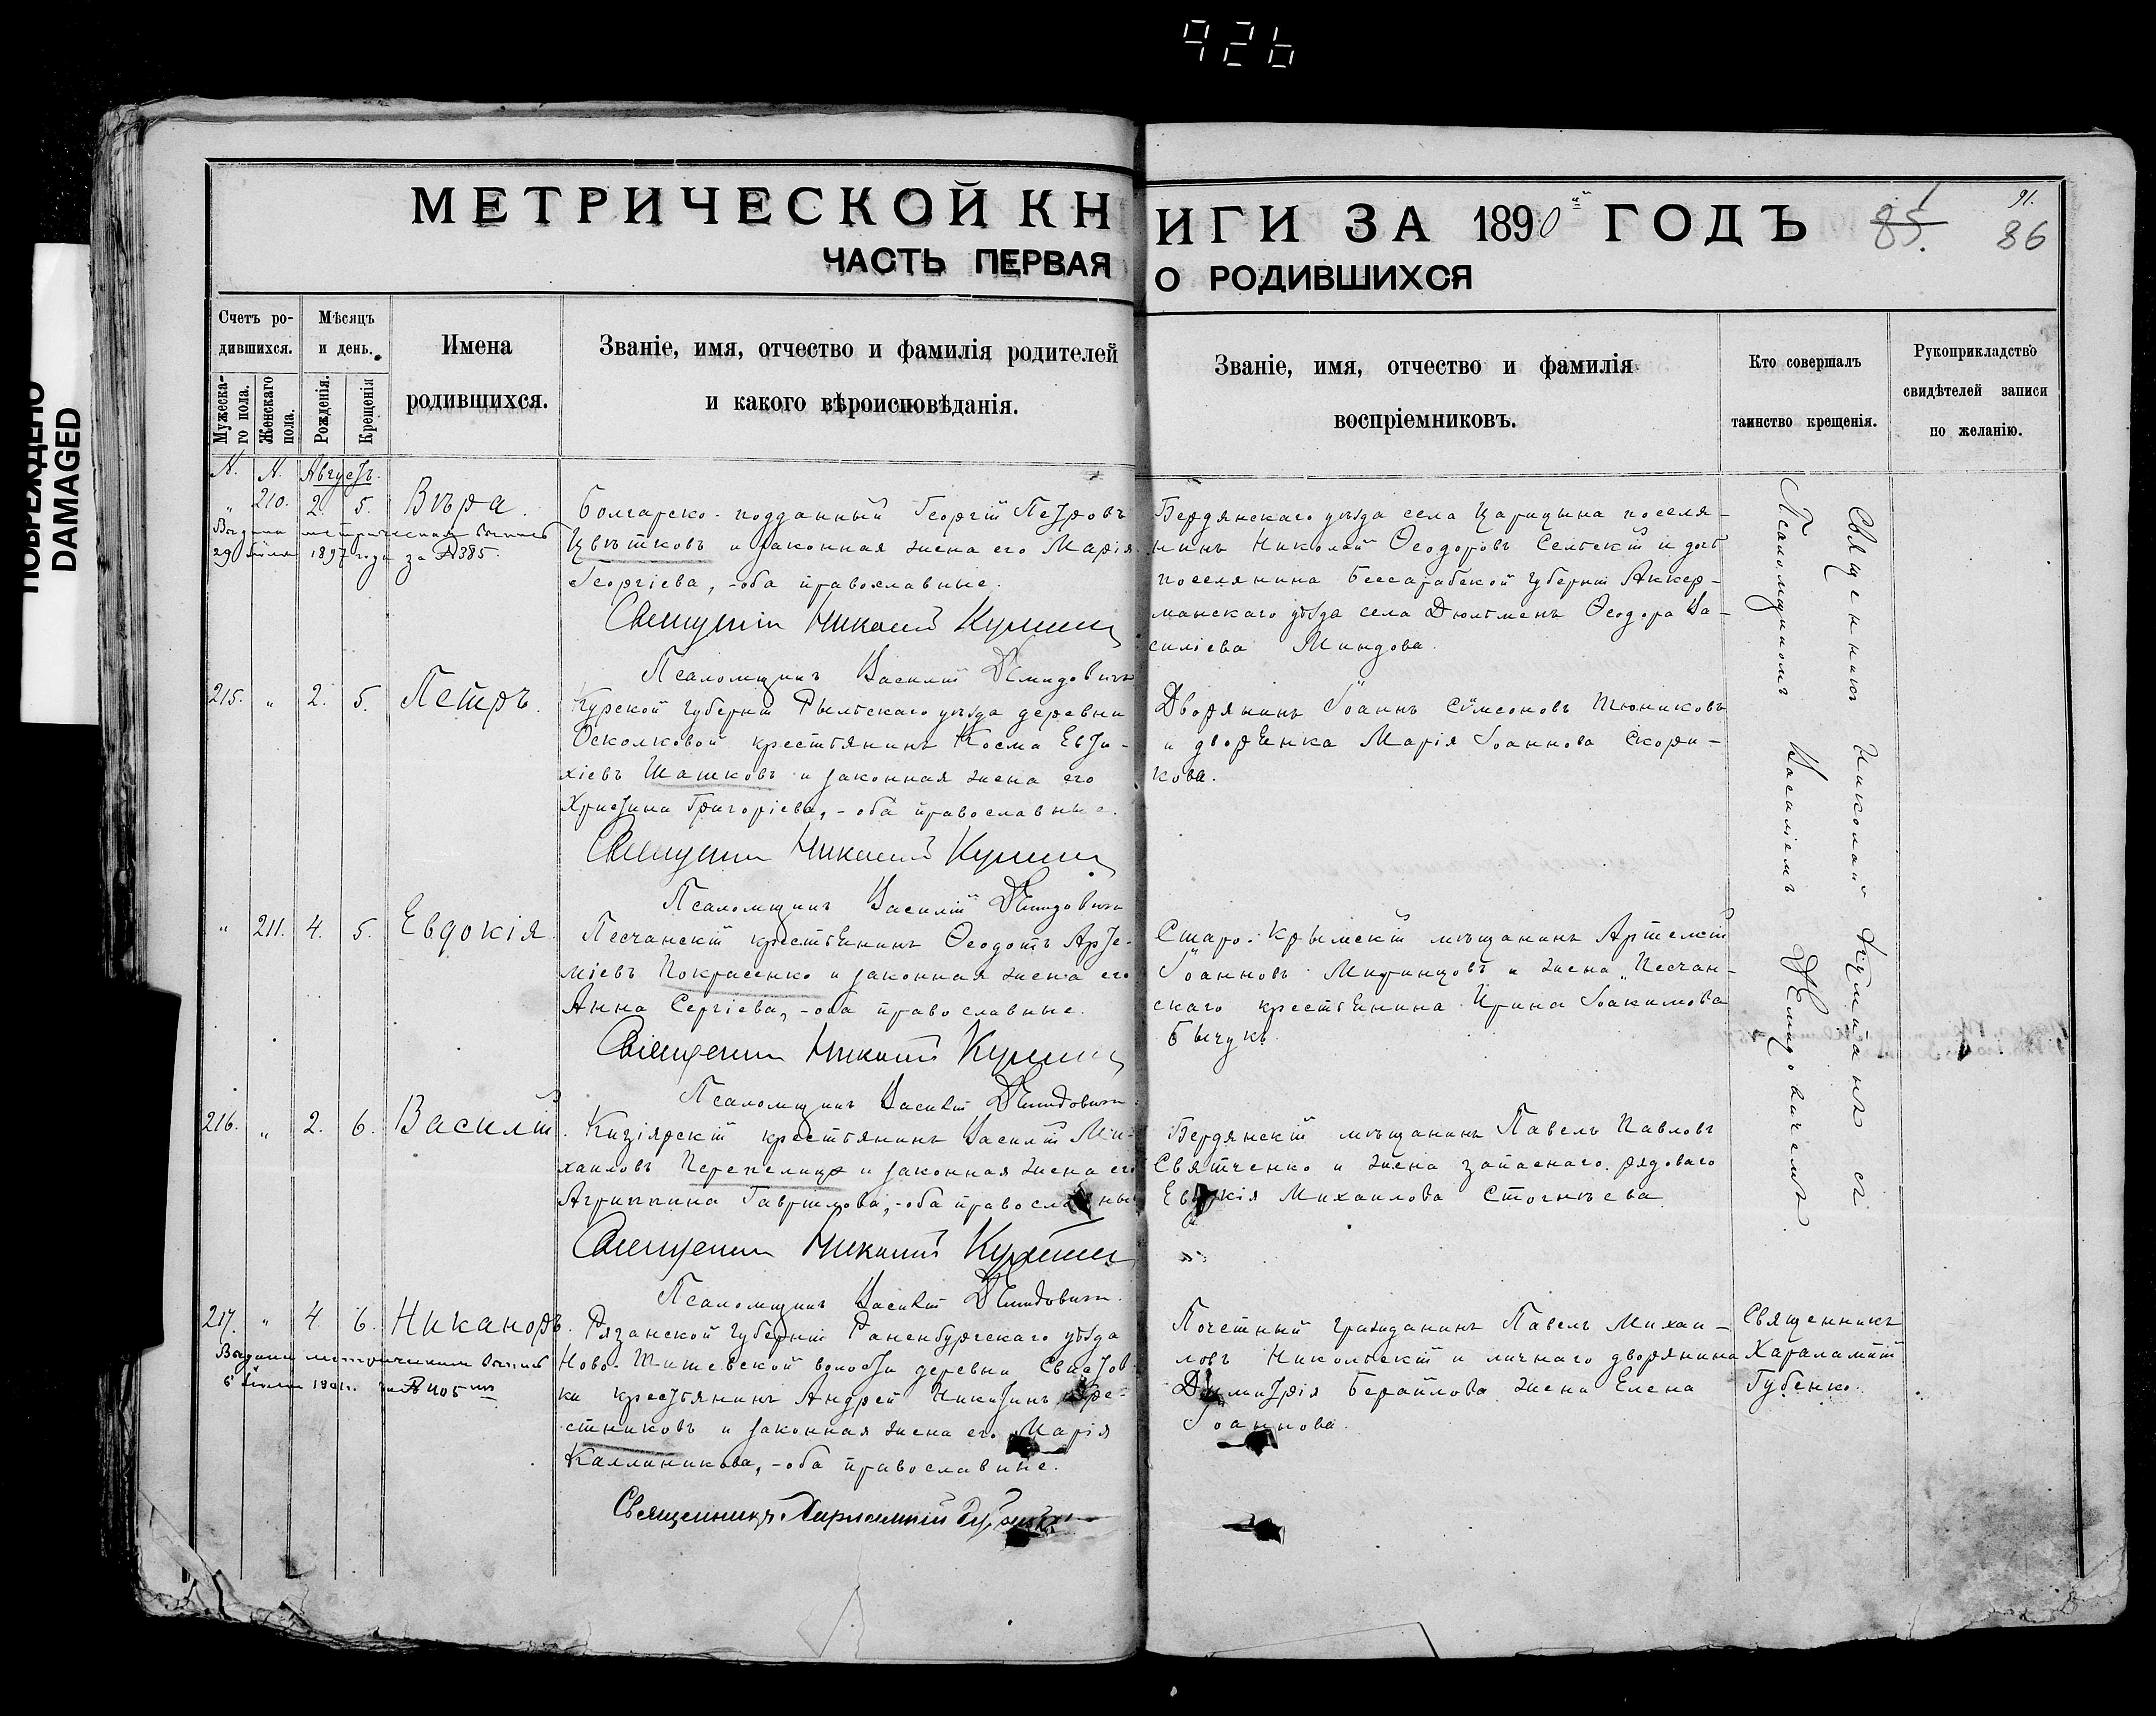 926
ПОВРЕЖДЕНО
DAMAGED
МЕТРИЧЕСКОЙ КНИГИ ЗА 1890й ГОДЪ
85.
91.
86
ЧАСТЬ ПЕРВАЯ О РОДИВШИХСЯ
Счетъ родившихся.
Мужескаго пола.
Женскаго пола.
Мѣсяцъ и день.
Рожденія.
Крещенія
Имена
родившихся.
Званіе, имя, отчество и фамилія родителей
и какого вѣроисповѣданія.
Званіе, имя, отчество и фамилія
воспріемниковъ.
Кто совершалъ
таинство крещенія.
Рукоприкладство
свидѣтелей записи
по желанію.
N. N. Августъ.
" 210. 2. 5. Вѣра.
Выдана метрическая выпись
29 1897 года за № 385.
Болгарско-подданный Георгій Петровъ
Цвѣтковъ и законная жена его Марія
Георгіева, - оба православные.
Священникъ Николай
Псаломщикъ Василій Демидовичъ
Бердянскаго уѣзда села Царицына поселя-
нинъ Николай Ѳеодоровъ Сельскій и дочь
поселянина Бессарабской губерніи Аккер-
манскаго уѣзда села Дюльменъ Ѳеодора Ва-
силіева Миндова.
215. " 2. 5. Петръ.
Курской губерніи Рыльскаго уѣзда деревни
Осколковой крестьянинъ Косма Евти-
хіевъ Шашковъ и законная жена его
Христина Григоріева, - оба православные.
Священникъ Николай
Псаломщикъ Василій Демидовичъ
Дворянинъ Іоаннъ Сѵмеоновъ Тюниковъ
и дворянка Марія Іоаннова Скори-
кова.
" 211. 4. 5. Евдокія
Песчанскій крестьянинъ Ѳеодотъ Арте-
міевъ Покрасенко и законная жена его
Анна Сергіева, - оба православные.
Священникъ Николай
Псаломщикъ Василій Демидовичъ
Старо-Крымскій мѣщанинъ Артемій
Іоанновъ и жена Песчан-
скаго крестьянина Ирина Іоакимова
Бычукъ
216. " 2. 6. Василій.
Кизіярскій крестьянинъ Василій Ми-
хаиловъ Перепелица и законная жена его
Агриппина Гавриилова, - оба православные
Священникъ Николай
Псаломщикъ Василій Демидовичъ
Бердянскій мѣщанинъ Павелъ Павловъ
Святченко и жена запаснаго рядоваго
Евдокія Михаилова Стогнѣева
Священникъ Николай съ
Псаломщикомъ Василіемъ Демидовичемъ
217. " 4. 6. Никаноръ.
Выдана метрическая выпись
6 1901 г. за № 405
Рязанской губерніи Раненбургскаго уѣзда
Ново- волости деревни
ки крестьянинъ Андрей Никитинъ Кре-
стниковъ и законная жена его Марія
Каллиникова, - оба православные.
Священникъ Харлампій Губенко
Почетный гражданинъ Павелъ Михаи-
ловъ Никольскій и личнаго дворянина
Димитрія Бераилова жена Елена
Іоаннова.
Священникъ
Харалампій
Губенко.